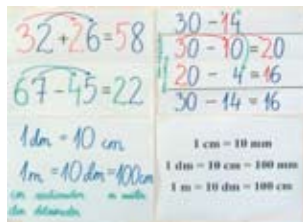 32+26=58
67-45=22
1 dm = 10 cm
1m = 10 dm = 100cm
30 - 14
30 - 10 = 20
20 - 4 = 16
30 - 14 = 16
1 cm = 10 mm
1 dm = 10 cm = 100 mm
1 m = 10 dm = 100 cm